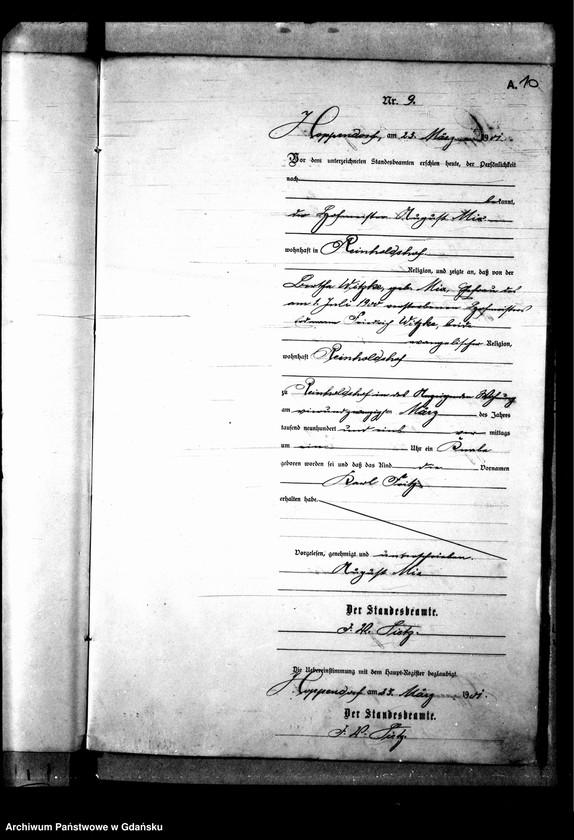 A. 10
Nr. 9.
Hoppendorf, am 25. März 1901.
Vor dem unterzeichneten Standesbeamten erschien heute, der Persönlichkeit
nach
bekannt,
der Hofmeister August Mix
wohnhaft in Reinholdshof.
Religion, und zeigte an, daß von der
Bertha Witzke, geb. Mix, Ehefrau des
am 1. Juli 1900 verstorbenen Hofmeisters
Friedrich Witzke, beide
evangelischer Religion,
wohnhaft Reinholdshof
zu Reinholdshof in des Anzeigenden Wohnung
am vierundzwanzigsten März des Jahres
tausend neunhundert und eins vor mittags
um ein Uhr ein Knabe
geboren worden sei und daß das Kind die Vornamen
Karl Fritz
erhalten habe.
Vorgelesen, genehmigt und unterschrieben.
August Mix
Der Standesbeamte.
J. V. Tietz.
Die Uebereinstimmung mit dem Haupt-Register beglaubigt.
Hoppendorf am 25. März 1901.
Der Standesbeamte.
J. V. Tietz.
Archiwum Państwowe w Gdańsku